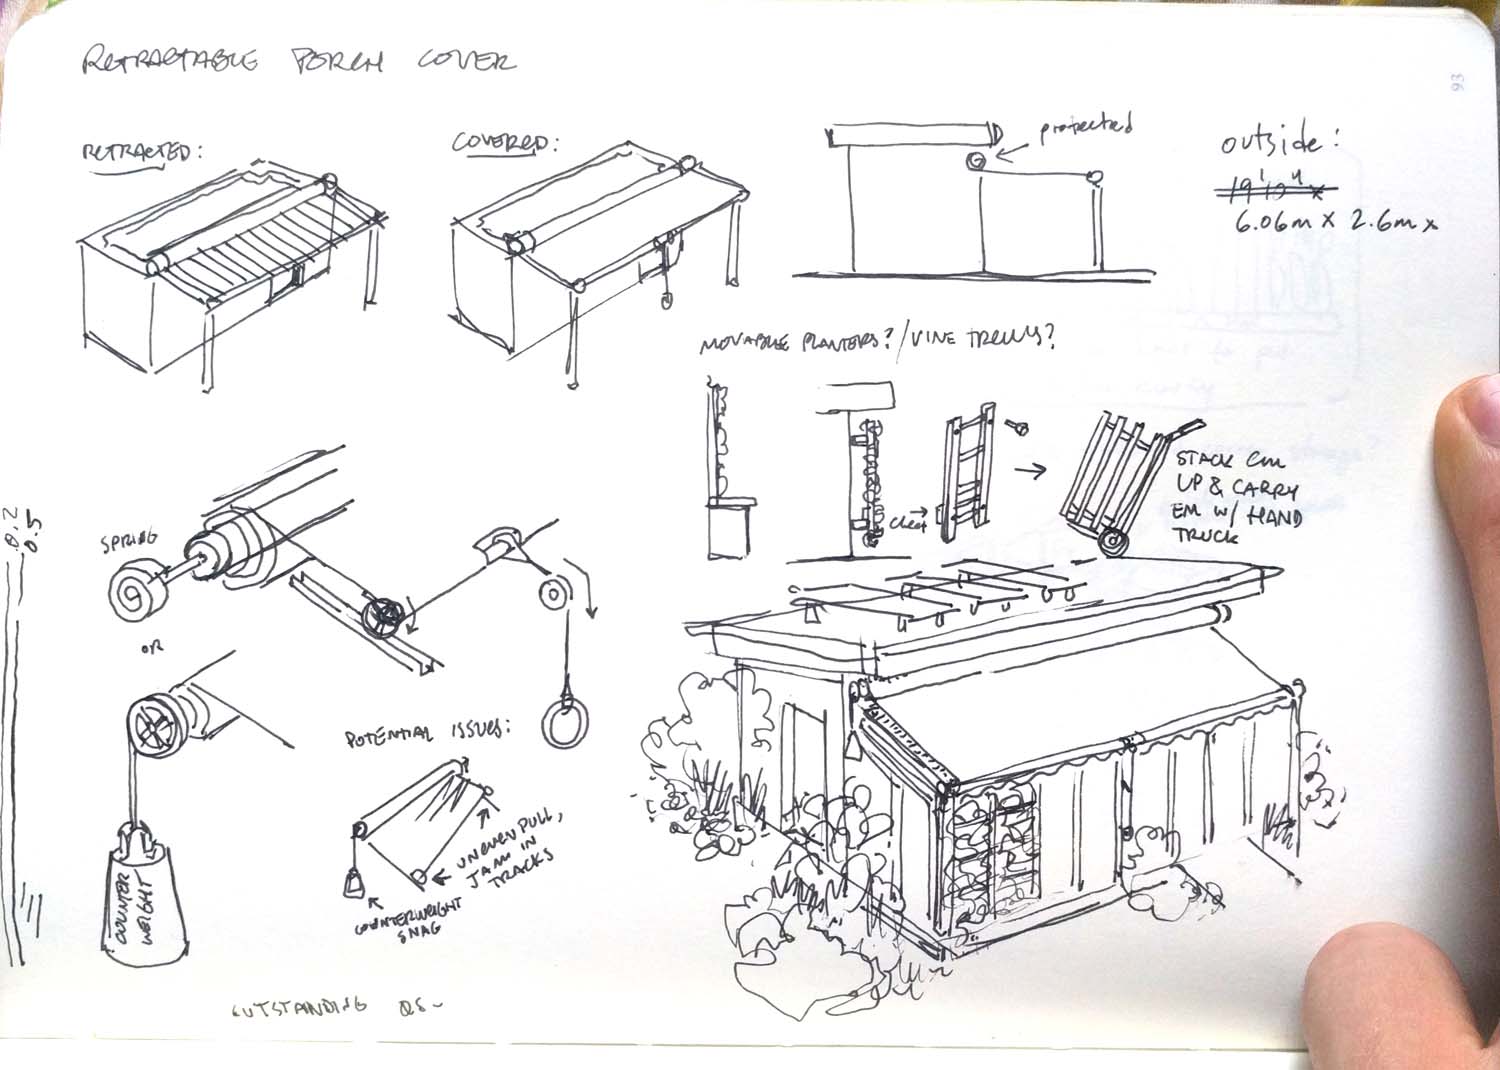 RETRACTABLE PORCH COVER
93
RETRACTED:
COVERED:
protected
outside:
19'10" x
6.06m x 2.6m x
MOVABLE PLANTERS? / VINE TRELLIS?
STACK EM
UP & CARRY
EM W/ HAND
TRUCK
cleat
0.2
0.5
SPRING
OR
COUNTER
WEIGHT
POTENTIAL ISSUES:
UNEVEN PULL,
JAM IN
TRACKS
COUNTERWEIGHT
SNAG
OUTSTANDING QS~